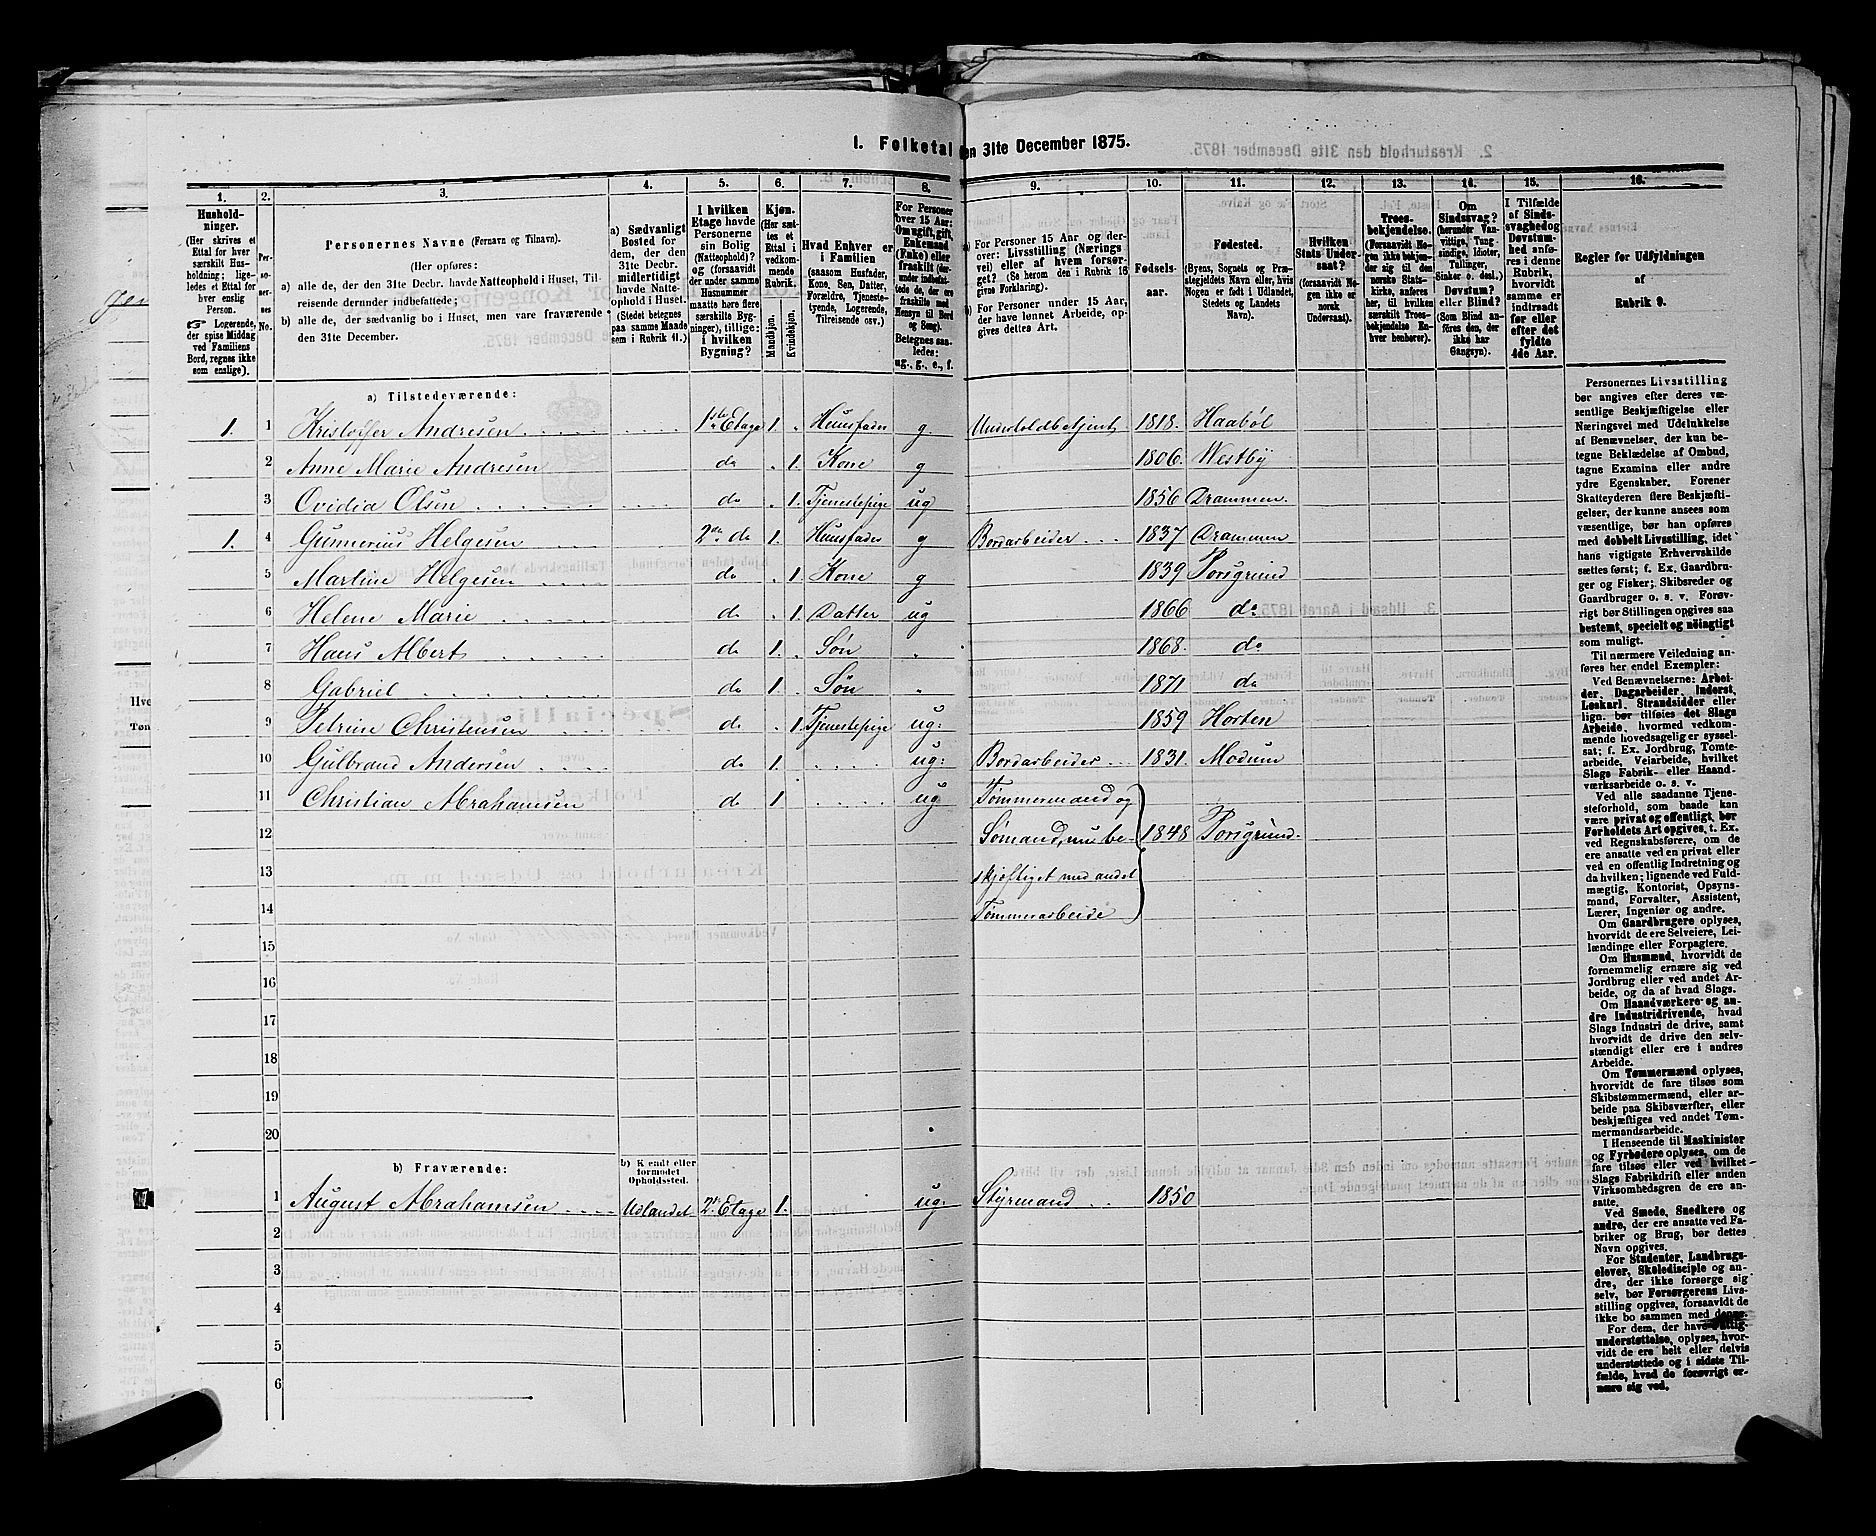 1. Folketal den 31te December 1875.
1. 2. 3. 4. 5. 6. 7. 8. 9. 10. 11. 12. 13. 14. 15. 16.
Husholdninger. (Her skrives et Ettal for hver særskilt Husholdning; ligeledes et Ettal for hver enslig Person. ☞ Logerende, der spise Middag ved Familiens Bord, regnes ikke som enslige).
Personernes No.
Personernes Navne (Fornavn og Tilnavn).
(Her opføres:
a) alle de, der den 31te Decbr. havde Natteophold i Huset, Tilreisende derunder indbefattede;
b) alle de, der sædvanlig bo i Huset, men vare fraværende den 31te December.
a) Sædvanligt Bosted for dem, der den 31te Decbr. midlertidigt havde Natteophold i Huset. (Stedet betegnes paa samme Maade som i Rubrik 11.)
I hvilken Etage havde Personerne sin Bolig (Natteophold)? og (forsaavidt der under samme Husnummer maatte høre flere særskilte Bygninger), tillige: i hvilken Bygning?
Kjøn. (Her sættes et Ettal i vedkommende Rubrik.
Mandkjøn. Kvindekjøn.
Hvad Enhver er i Familien (saasom Husfader, Kone, Søn, Datter, Forældre, Tjenestetyende, Logerende, Tilreisende osv.)
For Personer over 15 Aar: Om ugift, gift, Enkemand (Enke) eller fraskilt (derunder indbefattede de, der ere fraskilte med Hensyn til Bord og Seng). Betegnes saaledes: ug., g., e., f.
a) For Personer 15 Aar og derover: Livsstilling (Næringsvei) eller af hvem forsørget? (Se herom den i Rubrik 16 givne Forklaring).
b) For Personer under 15 Aar, der have lønnet Arbeide, opgives dettes Art.
Fødselsaar.
Fødested. (Byens, Sognets og Præstegjeldets Navn eller, hvis Nogen er født i Udlandet, Stedets og Landets Navn).
Hvilken Stats Undersaat? (forsaavidt Nogen ikke er norsk Undersaat).
Troesbekjendelse. (Forsaavidt Nogen ikke bekjender sig til den norske Statskirke, anføres her, til hvilken særskilt Troesbekjendelse Enhver henhører).
Om Sindssvag? (herunder Vanvittige, Tungsindige, Idioter, Tullinger, Sinker o. desl.) Døvstum? eller Blind? (Som Blind anføres den, der ikke har Gangsyn).
I Tilfælde af Sindssvaghed og Døvstumhed anføres i denne Rubrik, hvorvidt samme er indtraadt før eller efter det fyldte 4de Aar.
Regler for Udfyldningen af Rubrik 9.
a) Tilstedeværende:
1. 1 Kristoffer Andresen 1ste Etage 1. Huusfader g. 1818. Haabøl
2 Anne Marie Andresen do 1. Kone g 1806. Westby
3 Ovidia Olsen do 1. Tjenestepige ug 1856 Drammen
1. 4 Gunnerius Helgesen 2den do 1. Huusfader g Bordarbeider 1837 Drammen
5 Martine Helgesen do 1. Kone g 1839 Porsgrund
6 Helene Marie do 1. Datter ug 1866 do
7 Hans Albert do 1. Søn 1868. do
8 Gabriel do 1. Søn 1871 do
9 Petrine Christensen do 1. Tjenestepige ug: 1859 Horten
10 Gulbrand Andersen do 1. ug: Bordarbeider 1831 Modum
11 Christian Abrahamsen do 1. ug Tømmermand og
12 Sømand, nu be- 1848 Porsgrund
13 skjeftiget med andet
14 Tømmerarbeide
15
16
17
18
19
20
b) Fraværende: b) Kjendt eller formodet Opholdssted.
1 August Abrahamsen Udlandet 2. Etage 1. ug. Styrmand 1850
2
3
4
5
6
Personernes Livsstilling
bør angives efter deres væ-
sentlige Beskjæftigelse eller
Næringsvei med Udelukkelse
af Benævnelser, der kun be-
tegne Beklædelse af Ombud,
tagne Examina eller andre
ydre Egenskaber. Forener
Skatteyderen flere Beskjæfti-
gelser, der kunne ansees som
væsentlige, bør han opføres
med dobbelt Livsstilling, idet
hans vigtigste Erhvervskilde
sættes først; f. Ex. Gaardbru-
ger og Fisker; Skibsreder og
Gaardbruger o. s. v. Forøv-
rigt bør Stillingen opgives saa
bestemt, specielt og nøiagtigt
som muligt.
Til nærmere Veiledning an-
føres her endel Exempler:
Ved Benævnelserne: Arbei-
der, Dagarbeider, Inderst,
Løskarl, Strandsidder eller
lign. bør tilføies det Slags
Arbeide, hvormed vedkom-
mende hovedsagelig er syssel-
sat; f. Ex. Jordbrug, Tomte-
arbeide, Veiarbeide, hvilket
Slags Fabrik- eller Haand-
værksarbeide o. s. v.
Ved alle saadanne Tjene-
steforhold, som baade kan
være privat og offentligt, bør
Forholdets Art opgives, t. Ex.
ved Regnskabsførere, om de
ere ansatte ved en privat eller
ved en offentlig Indretning og
da hvilken; lignende ved Fuld-
mægtig, Kontorist, Opsyns-
mand, Forvalter, Assistent,
Lærer, Ingeniør og andre.
Om Gaardbrugere oplyses,
hvorvidt de ere Selveiere, Lei-
lændinge eller Forpagtere.
Om Husmænd, hvorvidt de
fornemmelig ernære sig ved
Jordbrug eller ved andet Ar-
beide, og da af hvad Slags.
Om Haandværkere og an-
dre Industridrivende, hvad
Slags Industri de drive, samt
hvorvidt de drive den selv-
stændigt eller ere i andres
Arbeide.
Om Tømmermænd oplyses,
hvorvidt de fare tilsøs som
Skibstømmermænd, eller ar-
beide paa Skibsværfter, eller
beskjæftiges ved andet Tøm-
mermandsarbeide.
I Henseende til Maskinister
og Fyrbødere oplyses, om de
fare tilsøs eller ved hvilket-
Slags Fabrikdrift eller anden
Virksomhedsgren de ere an-
satte.
Ved Smede, Snedkere og
andre, der ere ansatte ved Fa-
briker og Brug, bør dettes
Navn opgives.
For Studenter, Landbrugs-
elever, Skoledisciple og an-
dre, der ikke forsørge sig
selv, bør Forsørgerens Livs-
stilling opgives, forsaavidt de
ikke bo sammen med denne.
For dem, der have Fattig-
understøttelse, oplyses, hvor-
vidt de ere helt eller delvis
understøttede og i sidste Til-
fælde, hvad de forøvrigt er-
nære sig ved.